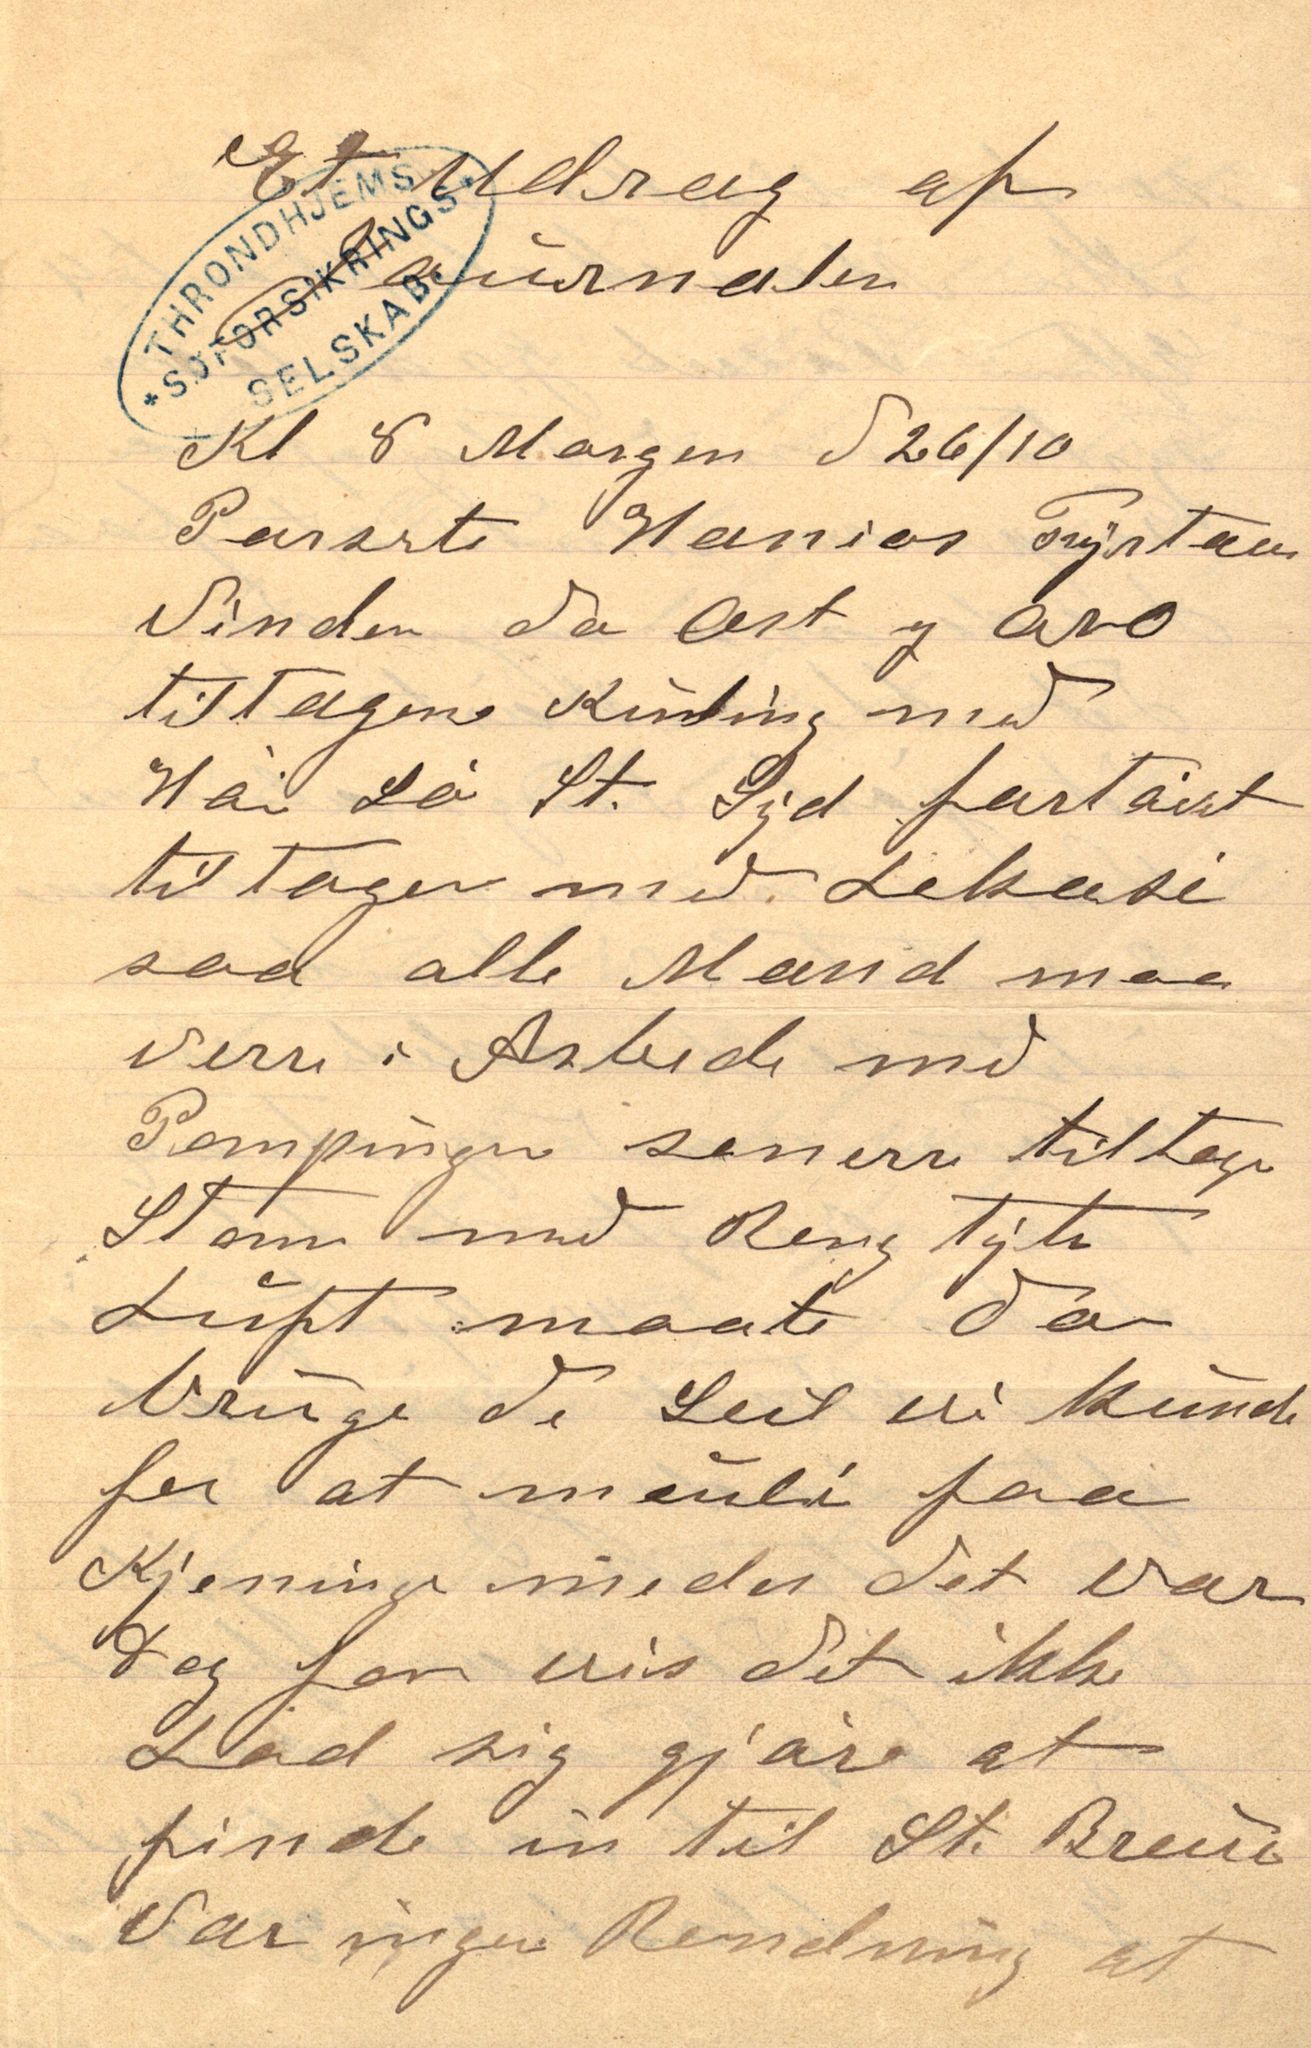 Et Udrag af
Jaurnalen
THRONDHJEMS
SØFORSIKRINGS
SELSKAB.
Kl 8 Morgen d 26/10
Passerte Hanios Fyrtaarn
Vinden da Ost og ONO
tiltagene Kuling med
Håi Sö St. Syd fortöist
tiltagen med Lekasi
saa alle Mand maa
verre i Arbeide med
Pompingen senerre tiltage
Storm med Reng tyk
Luft maate da
bruge de Seil vi kunde
for at mauli faa
Kjeninge meder det var
Dag for vis det ikke
Lod sig gjöre at
finde in til St. Breui
Var ingen Rendning at